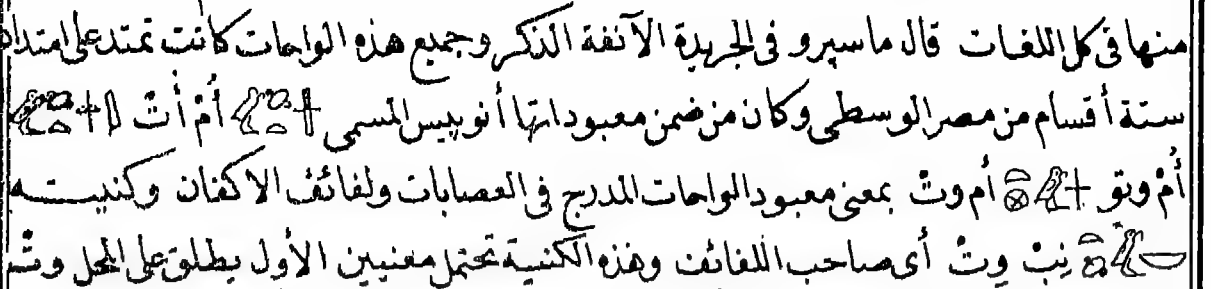 منها فى كل اللغات قال ماسپرو فى الجريدة الآنفة الذكر وجميع هذه الواحات كانت تمتد على امتداد
ستة أقسام من مصر الوسطى وكان من ضمن معبوداتها أنوبيس المسمى أُمْ أُتْ
أُمْ وتو أم وتْ بمعنى معبود الواحات المدرج فى العصابات ولفائف الاكفان وكنيسته
نِبْ وِتْ أى صاحب اللفائف وهذه الكنية تحتمل معنيين الأول يطلق على المحل وتْ